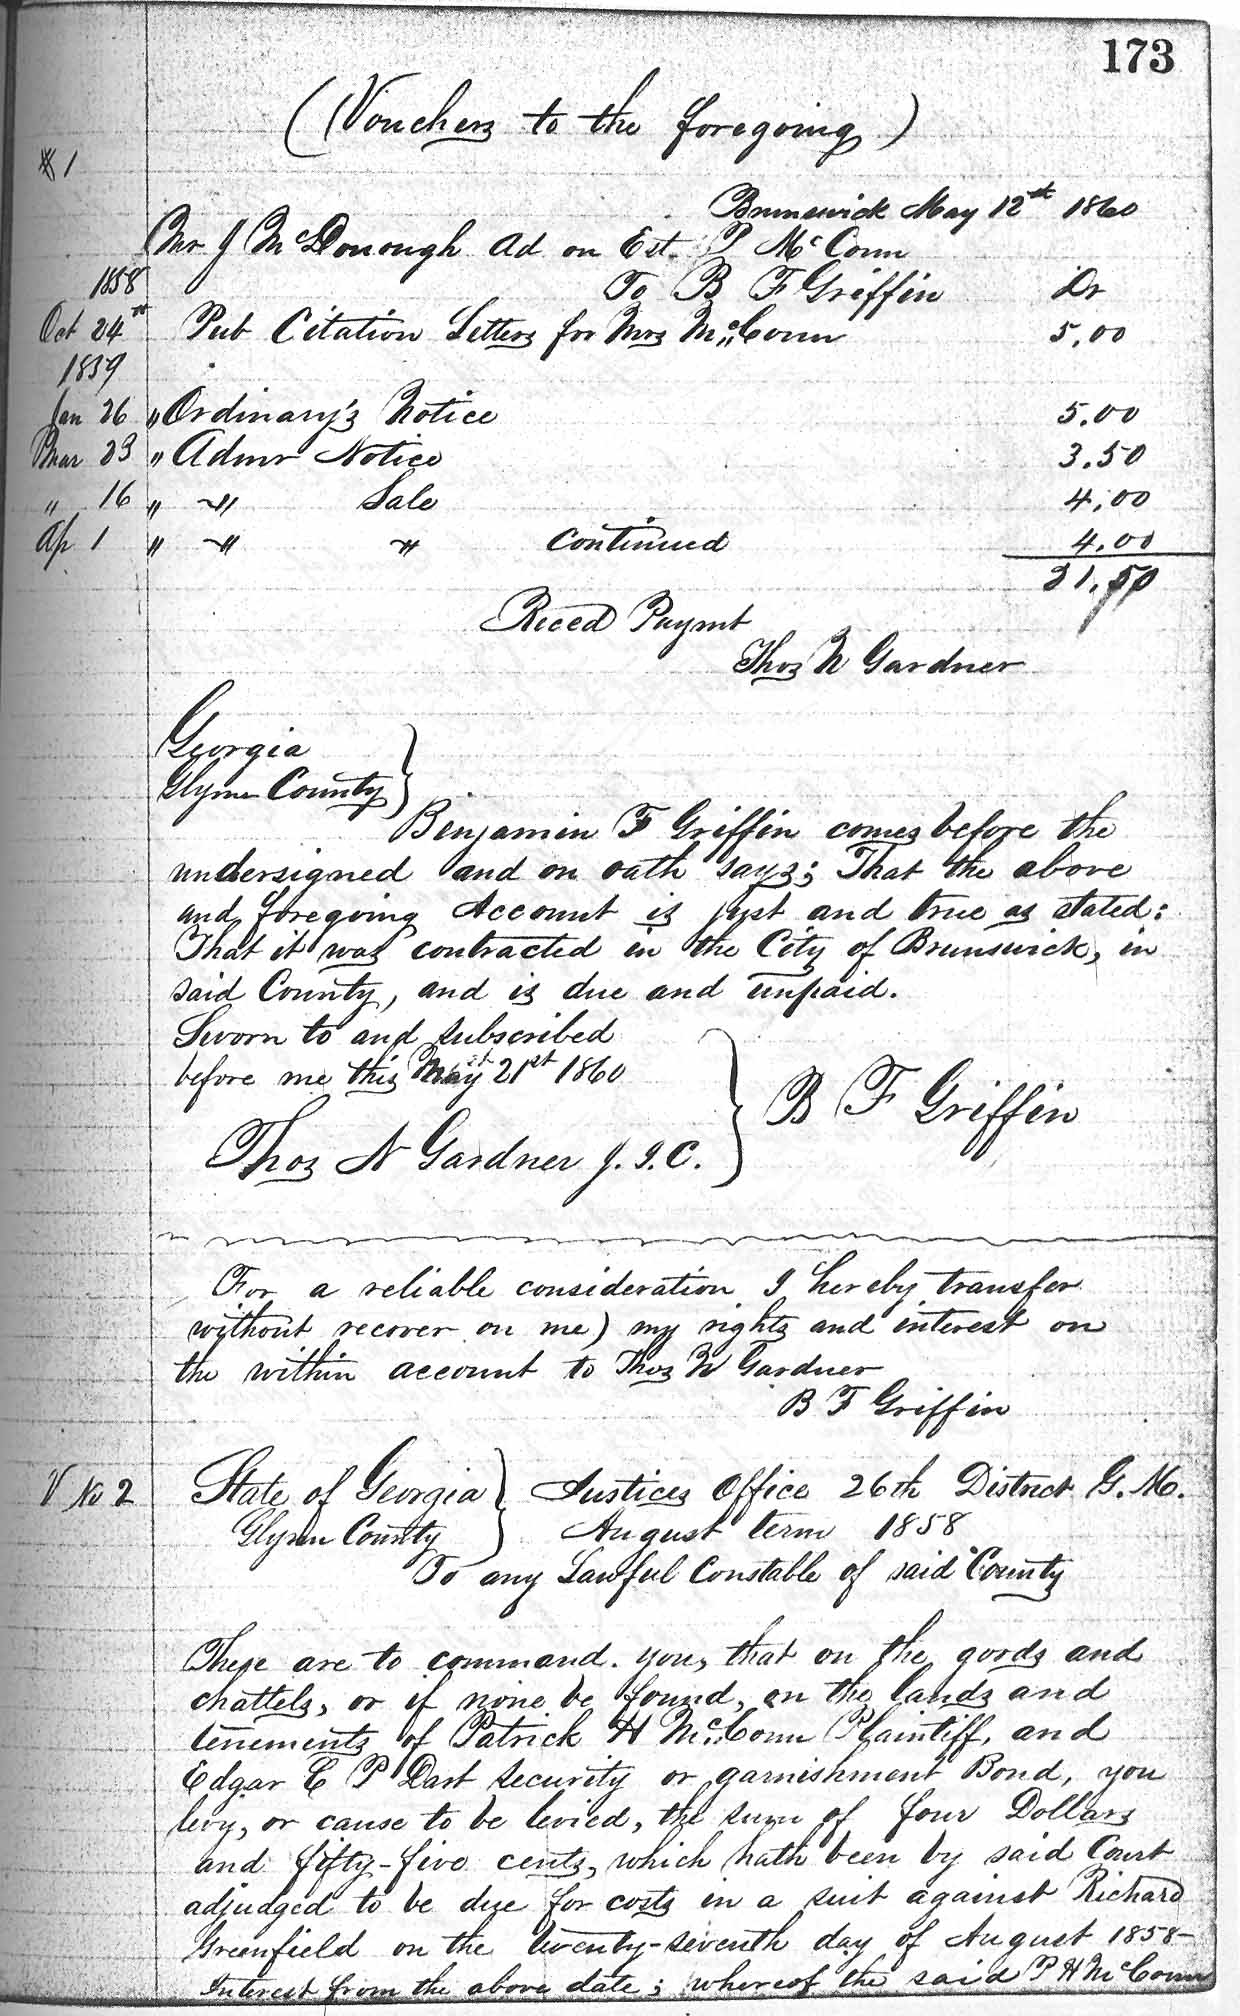 173
(Vouchers to the foregoing)
# 1
Brunswick May 12th 1860
Mr J McDonough Ad on Est. P McConn
1858 To B F Griffin Dr
Oct 24th Pub Citation Letters for Mrs McConn 5.00
1859
Jan 26 " Ordinary's Notice 5.00
Mar 23 " Admr Notice 3.50
" 16 " " Sale 4.00
Ap 1 " " " Continued 4.00
21.50
Reced Paymt
Thos N Gardner
Georgia
Glynn County }
Benjamin F Griffin comes before the
undersigned and on oath says; That the above
and foregoing Account is just and true as stated:
That it was contracted in the City of Brunswick, in
said County, and is due and unpaid.
Sworn to and subscribed
before me this May 21st 1860
B F Griffin
Thos N Gardner J. I. C.
For a reliable consideration I hereby transfer
without recover on me) my rights and interest on
the within account to Thos N Gardner
B F Griffin
V No 2 State of Georgia } Justices Office 26th District G. M.
Glynn County August term 1858
To any Lawful Constable of said County
These are to command you, that on the goods and
chattels, or if none be found, on the lands and
tenements of Patrick H McConn Plaintiff, and
Edgar C P Dart security or garnishment Bond, you
levy, or cause to be levied, the sum of four Dollars
and fifty-five cents, which hath been by said Court
adjudged to be due for costs in a suit against Richard
Greenfield on the twenty-seventh day of August 1858-
Interest from the above date; whereof the said P H McConn